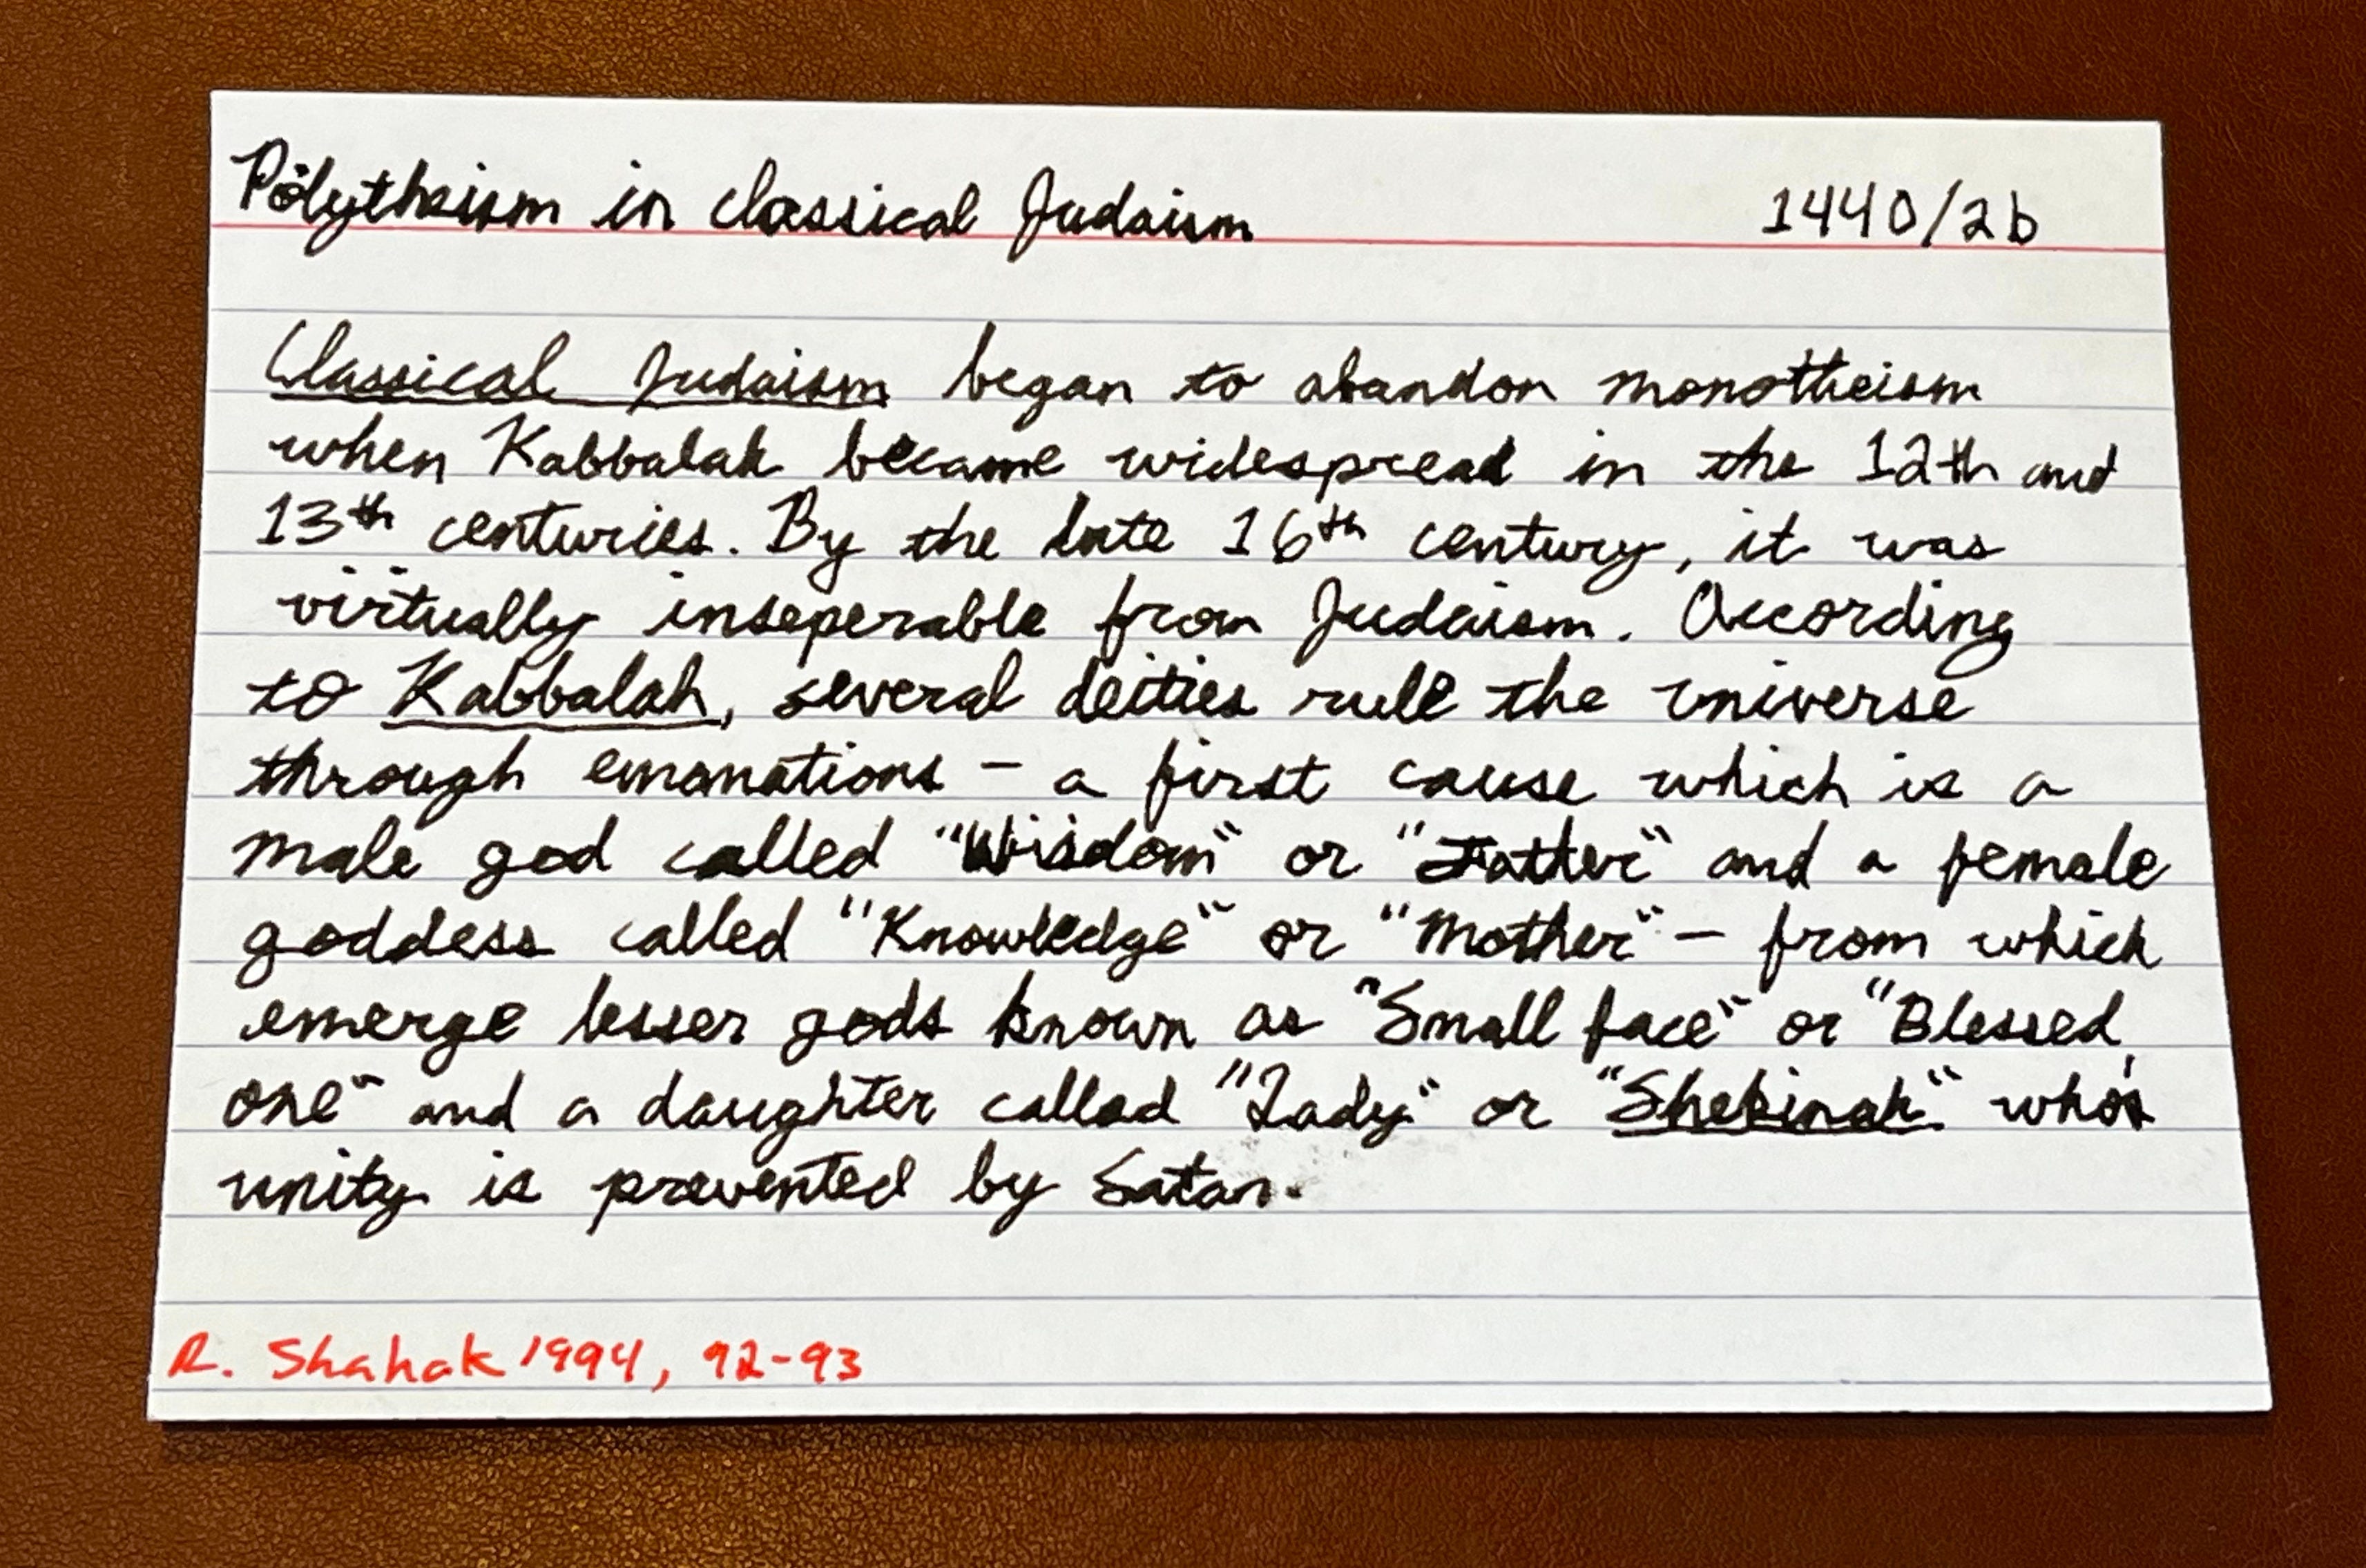 Polytheism in classical Judaism 1440/2b
Classical Judaism began to abandon monotheism
when Kabbalah became widespread in the 12th and
13th centuries. By the late 16th century, it was
virtually inseperable from Judaism. According
to Kabbalah, several deities rule the universe
through emanations - a first cause which is a
male god called "Wisdom" or "Father" and a female
goddess called "Knowledge" or "Mother" - from which
emerge lesser gods known as "Small face" or "Blessed
one" and a daughter called "Lady" or "Shekinah" who's
unity is prevented by Satan.
R. Shahak 1994, 92-93